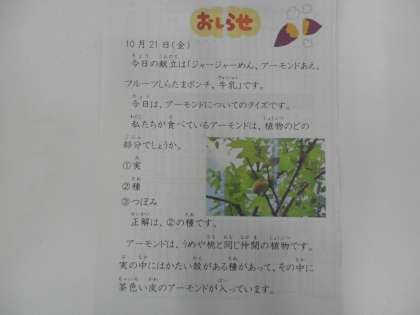 おしらせ
10月21日(金)
今日の献立は「ジャージャーめん、アーモンドあえ、
フルーツしらたまポンチ、牛乳」です。
今日は、アーモンドについてのクイズです。
私たちが食べているアーモンドは、植物のどの
部分でしょうか。
①実
②種
③つぼみ
正解は、②の種です。
アーモンドは、うめや桃と同じ仲間の植物です。
実の中にはかたい殻がある種があって、その中に
茶色い皮のアーモンドが入っています。